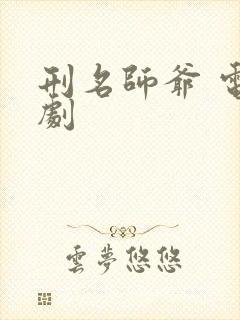 刑名師爺 電
劇
雲夢悠悠